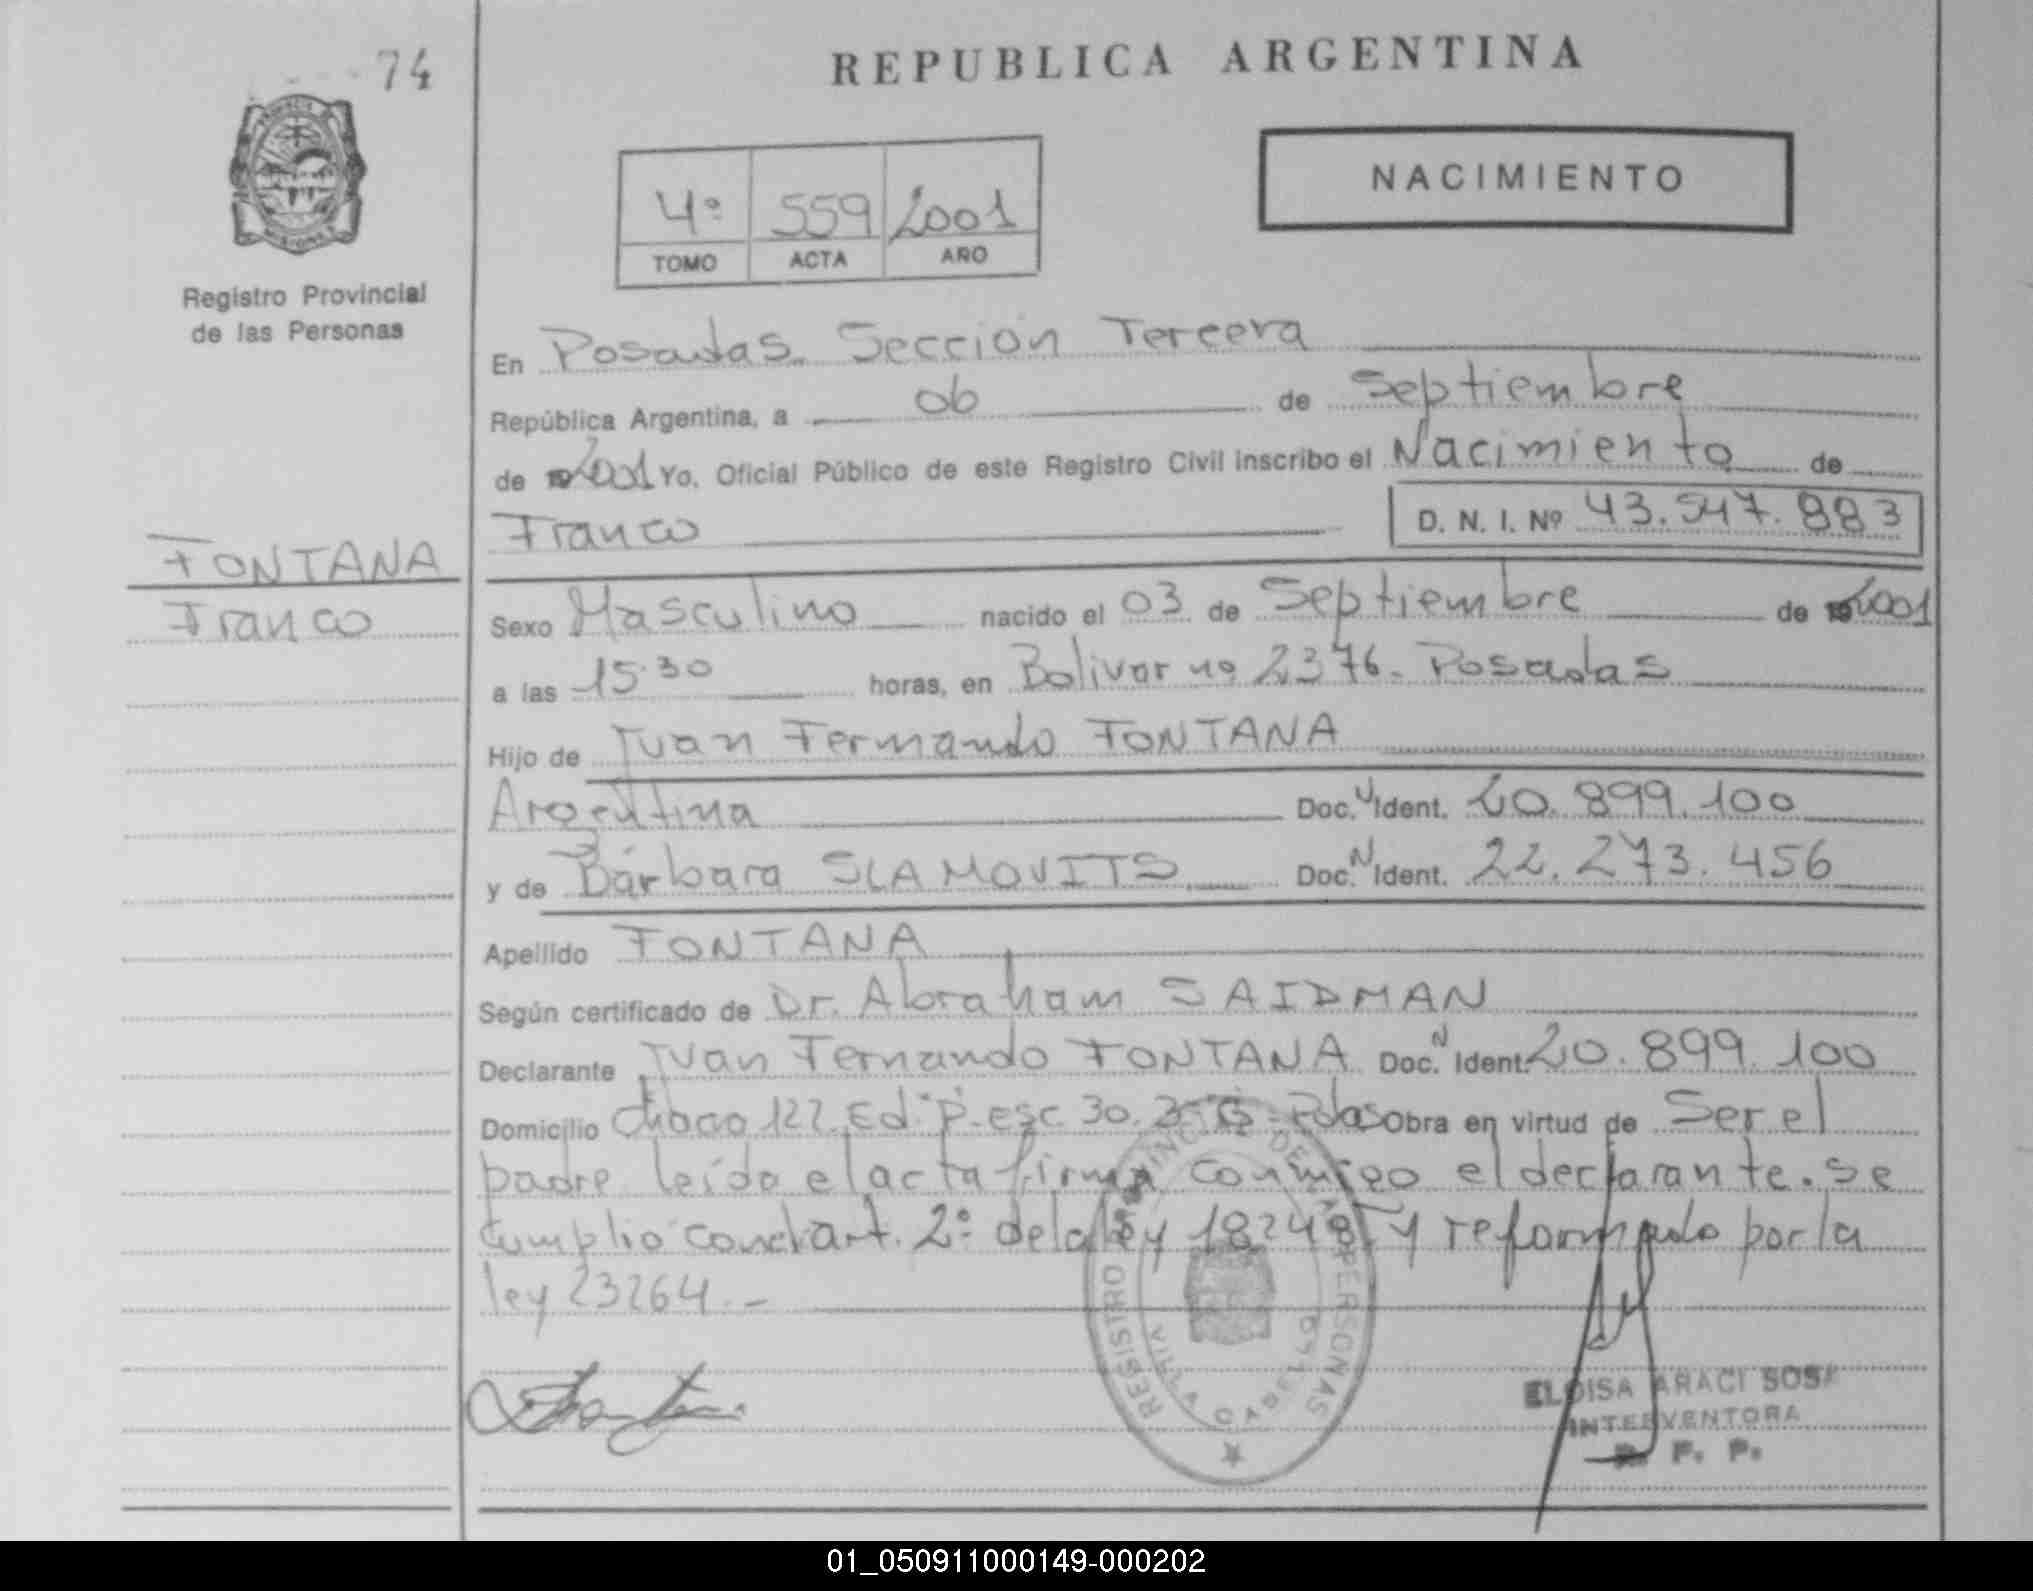 74
REPUBLICA ARGENTINA
PROVINCIA DE
MISIONES
Registro Provincial
de las Personas
4º 559 2001
TOMO ACTA AÑO
NACIMIENTO
En Posadas. Sección Tercera
República Argentina, a 06 de Septiembre
de 2001 Yo, Oficial Público de este Registro Civil inscribo el Nacimiento de
Franco D. N. I. Nº 43.547.883
FONTANA
Franco
Sexo Masculino nacido el 03 de Septiembre de 2001
a las 15:30 horas, en Bolivar nº 2376. Posadas
Hijo de Ivan Fernando FONTANA
Argentina Doc. U Ident. 20.899.100
y de Bárbara SLAMOVITS Doc. N Ident. 22.273.456
Apellido FONTANA
Según certificado de Dr. Abraham SAIDMAN
Declarante Ivan Fernando FONTANA Doc. N Ident. 20.899.100
Domicilio Chaco 122. Ed. "P" esc. 30. Pdas Obra en virtud de Ser el
padre leída el acta firma conmigo el declarante. se
cumplio con el art. 2º de la ley 18248 y reformado por la
ley 23264.-
REGISTRO PROVINCIAL DE LAS PERSONAS
ELOISA ARACI SOSA
INTERVENTORA
R. P. P.
01_050911000149-000202